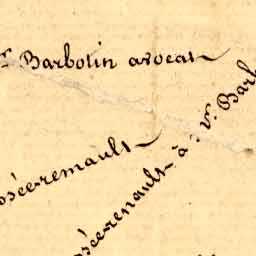 sr. Barbotin avocat
osée remault
osée renault à sr. Barb